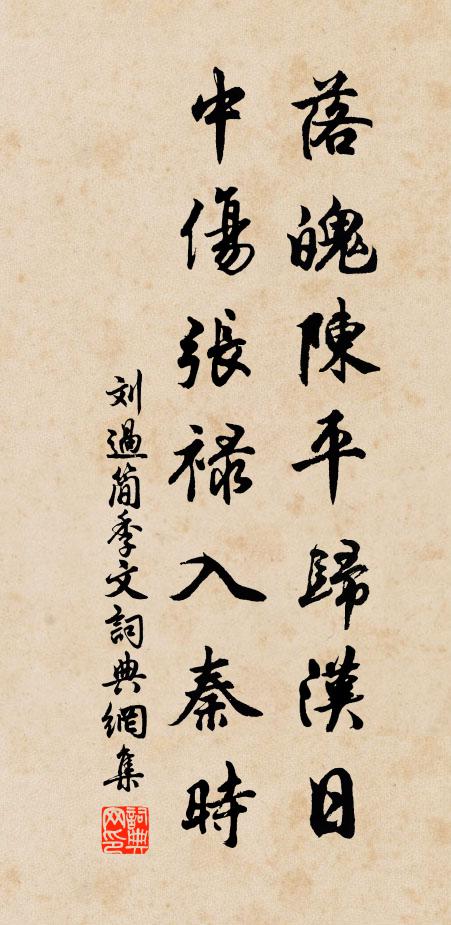 落魄陳平歸漢日
中傷張祿入秦時
刘過簡季文詞典網集
詞典網印